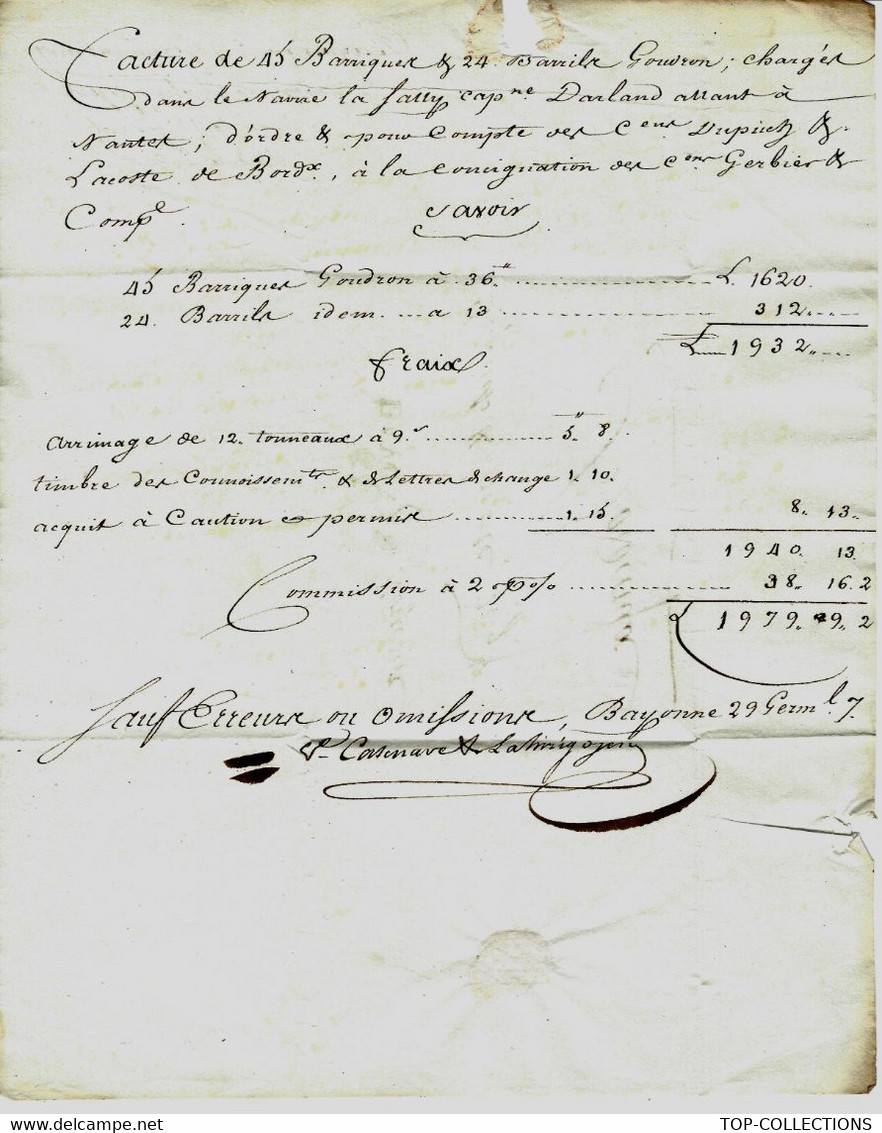 Facture de 45 Barriques & 24 Barrils Goudron; chargés
dans le Navire la Sally cap.ne Darland allant à
Nantes; d'ordre & pour Compte des C.ens Dupuch &
Lacoste de Bord.x, à la Consignation des C.ens Gerbier &
Comp.e
Savoir
45 Barriques Goudron à 36.# ... L. 1620.
24 Barrils idem ... a 13 ... 312...
L... 1932...
Fraix
arrimage de 12. tonneaux à 9.s ... 5.# 8.
timbre des Connoissem.ts & de Lettres de change 1. 10.
acquit à Caution & permis ... 1. 15. 8. 13.
1940. 13
Commission à 2 p% ... 38. 16. 2
L 1979. 9. 2
Sauf Erreurs ou omissions, Bayonne 29 Germ.l 7.
Casenave &
TOP-COLLECTIONS